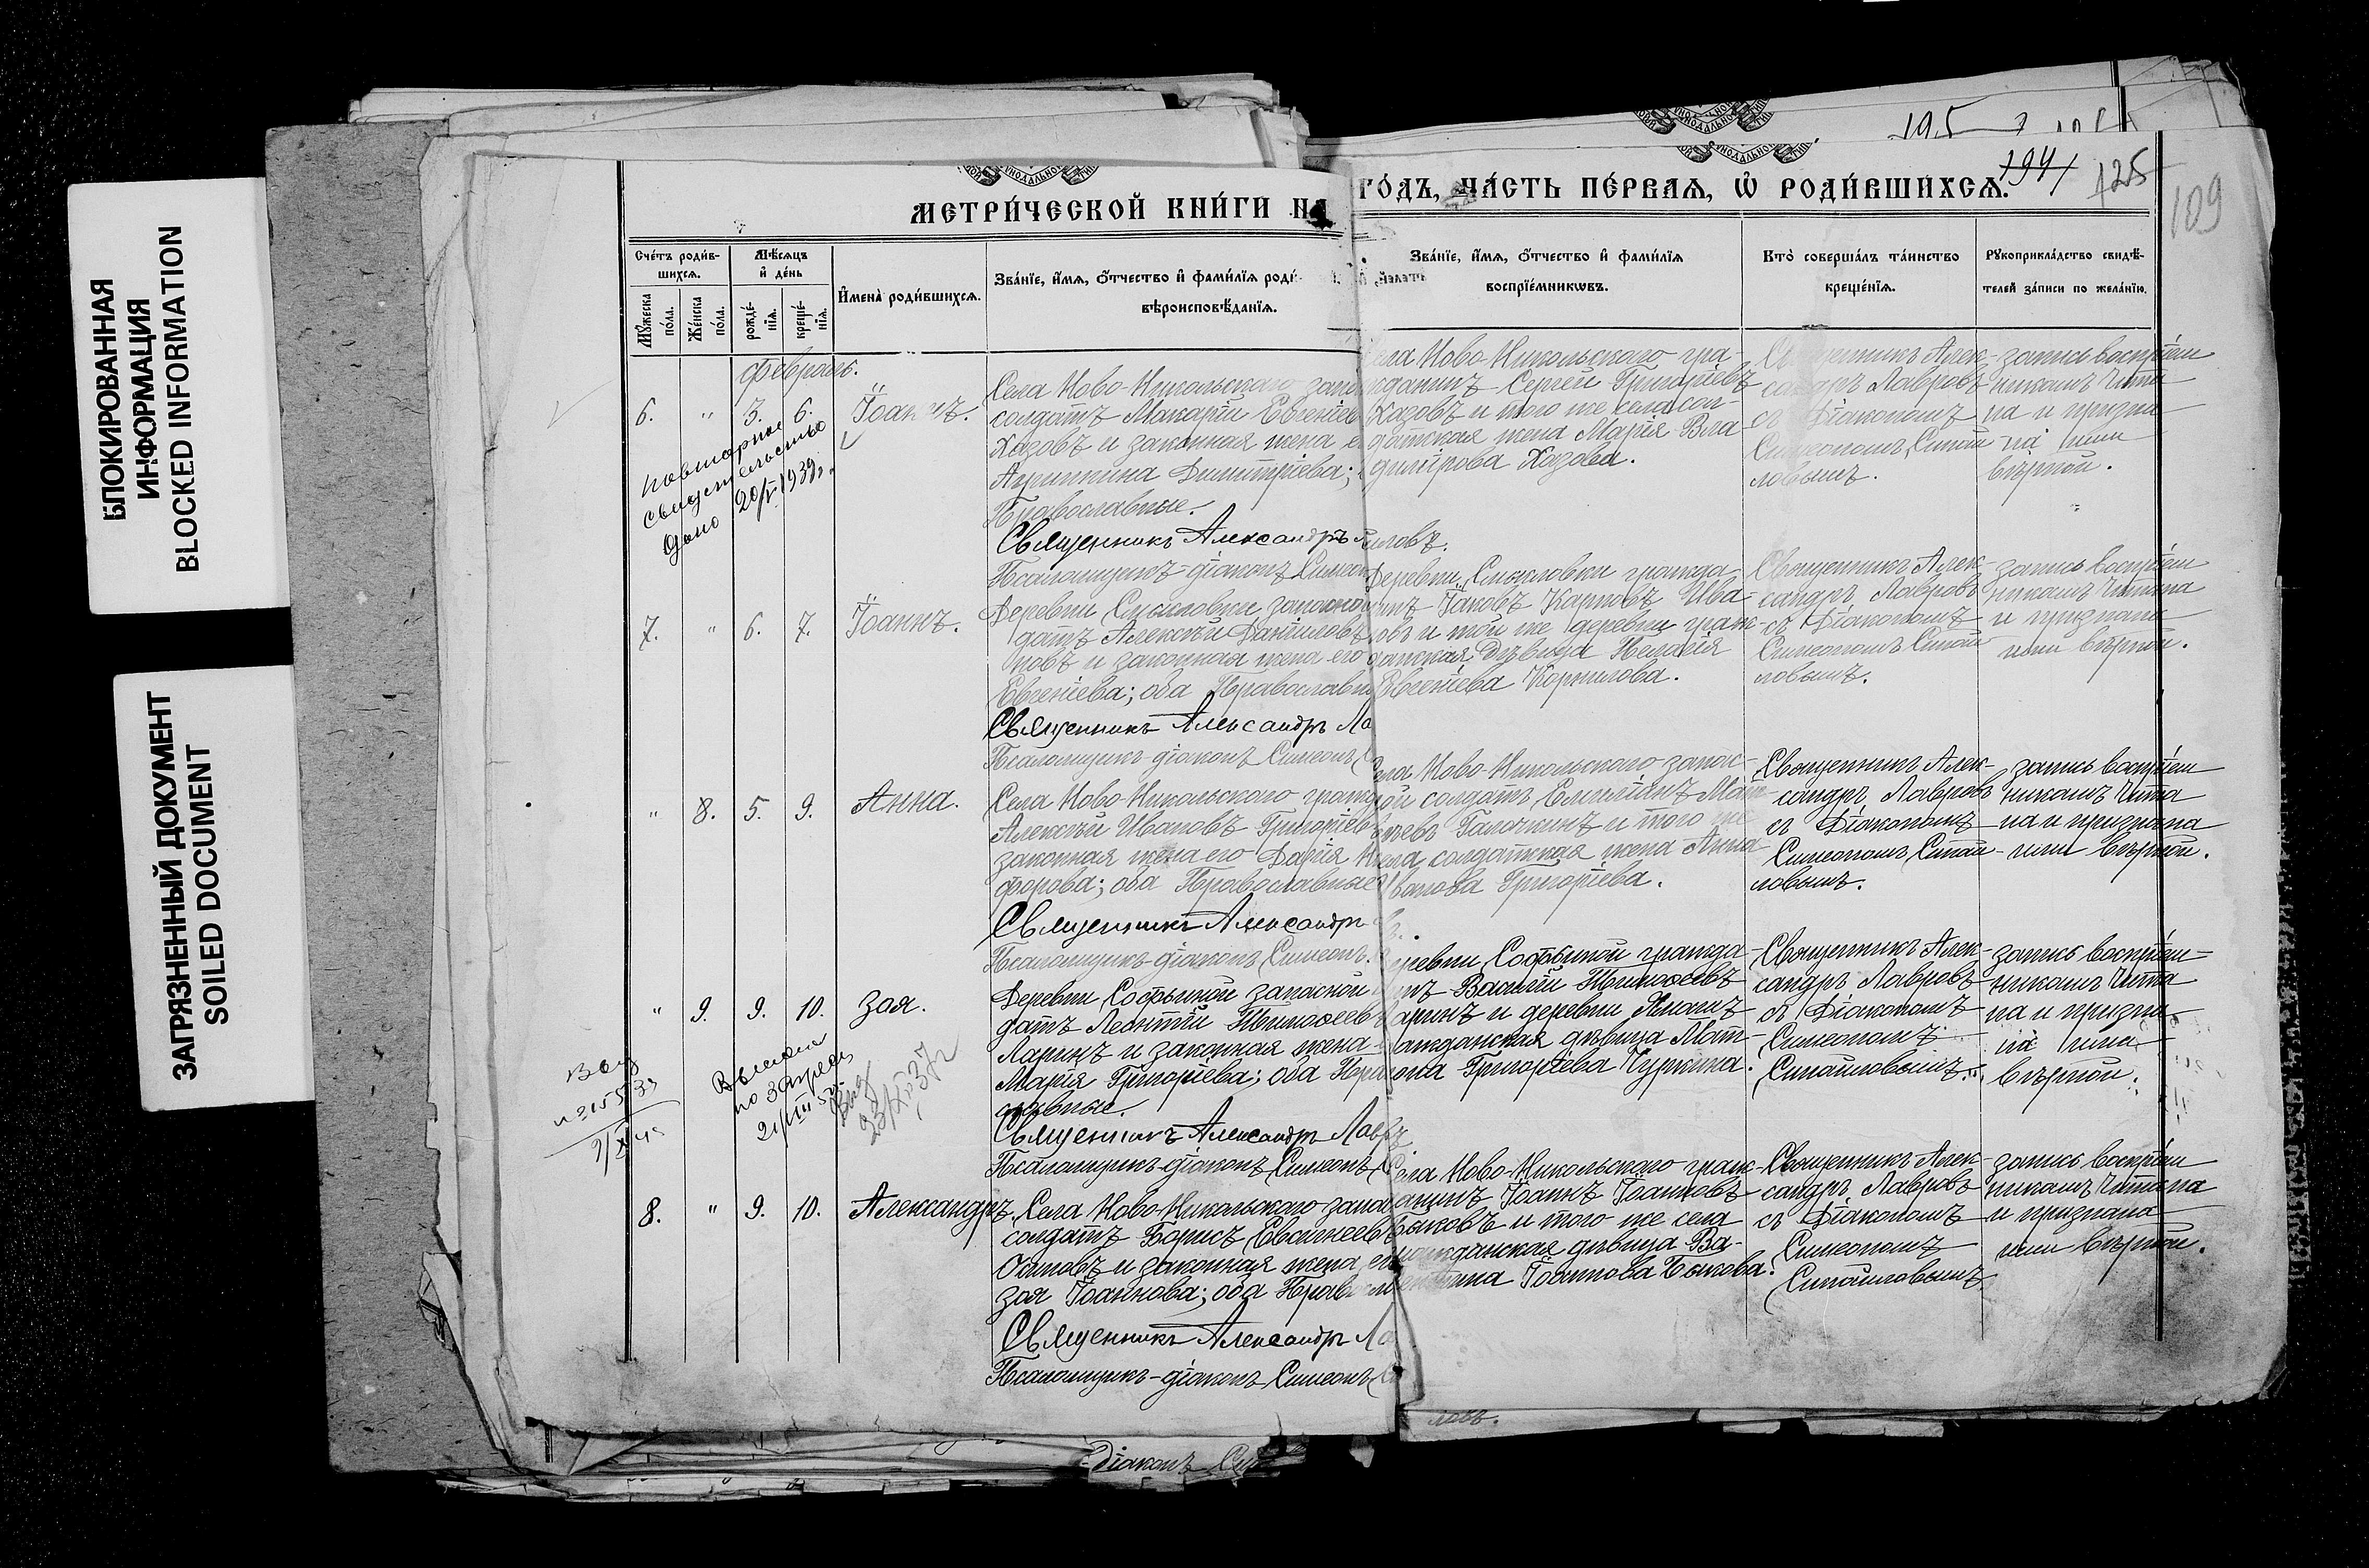 БЛОКИРОВАННАЯ
ИНФОРМАЦИЯ
BLOCKED INFORMATION
ЗАГРЯЗНЕННЫЙ ДОКУМЕНТ
SOILED DOCUMENT
195
194
125
109
МЕТРИ́ЧЕСКОЙ КНИ́ГИ НА
ГО́ДЪ, ЧА́СТЬ ПЕ́РВАѦ, Ѿ РОДИ́ВШИХСѦ.
Сче́тъ роди́в-
шихсѧ.
Мꙋ́жеска
по́ла.
Же́нска
по́ла.
Мѣ́сѧцъ
и҆ де́нь
рожде́-
нїѧ.
креще́-
нїѧ.
И҆мена̀ роди́вшихсѧ.
Зва́нїе, и҆́мѧ, ѻ҆́тчество и҆ фами́лїѧ роди́-
вѣроисповѣ́данїѧ.
Зва́нїе, и҆́мѧ, ѻ҆́тчество и҆ фами́лїѧ
воспрїе́мникѡвъ.
Кто̀ соверша́лъ та́инство
креще́нїѧ.
Рꙋкоприкла́дство свидѣ́-
телей за́писи по жела́нїю.
Февраль.
6. " 3. 6. Іоаннъ.
Села Ново-Никольскаго запа
солдатъ Макарій Евгеніев
Хазовъ и законная жена е
Агрипина Димитріева;
Православные.
Священникъ Александръ
Псаломщикъ-діаконъ Симеон
ела Ново-Никольскаго гра-
жданинъ Сергей Григоріевъ
Хазовъ и того же села сол-
датская жена Марія Вла-
димірова Хазова.
Священникъ Алек-
сандръ Лавровъ
съ Діакономъ
Симеономъ Синай-
ловымъ.
запись воспріем
никамъ чита
на и призна
на ими
вѣрной.
повторное
свидетельство
дано 20/V 1939г.
7. " 6. 7. Іоаннъ.
Деревни Смысловки запасно
датъ Алексѣй Даниловъ
новъ и законная жена его
Евгеніева; оба Православн
Священникъ Александръ Ла
Псаломщикъ-діаконъ Симеонъ
Деревни Смысловки гражда-
инъ Іаковъ Карповъ Ива-
новъ и той же деревни граж-
данская дѣвица Пелагія
Евгеніева Корнилова.
Священникъ Алек-
сандръ Лавровъ
съ Діакономъ
Симеономъ Синай
ловымъ.
запись воспріем
никамъ читана
и признана
ими вѣрной.
" 8. 5. 9. Анна.
Села Ново-Никольскаго гражд
Алексѣй Ивановъ Григоріев
законная жена его Дарія Н
форова; оба Православные
Священникъ Александръ
Псаломщикъ-діаконъ Симеонъ
ела Ново-Никольскаго запас-
ой солдатъ Емиліанъ Мат-
вѣевъ Галочкинъ и того же
села солдатская жена Анна
Иванова Григоріева.
Священникъ Алек-
сандръ Лавровъ
съ Діакономъ
Симеономъ Синай-
ловымъ.
запись воспріем
никамъ чита
на и признана
ими вѣрной.
" 9. 9. 10. Зоя.
Деревни Софьиной запасной
датъ Леонтій Тимофеев
Ларинъ и законная жена
Марія Григоріева; оба Пра
славные.
Священникъ Александръ Лавр
Псаломщикъ-діаконъ Симеонъ
еревни Софьиной гражда
инъ Василій Тимофеевъ
Ларинъ и деревни
ражданская дѣвица Мат-
рона Григоріева Чуркина.
Священникъ Алек-
сандръ Лавровъ
съ Діакономъ
Симеономъ
Синайловымъ.
запись воспріем-
никамъ чита
на и призна-
на ими
вѣрной.
Выслана
по запросу
21/VIII
8. " 9. 10. Александръ.
Села Ново-Никольскаго запа
солдатъ Борисъ Евгеніев
Осиповъ и законная жена ег
Зоя Іоаннова; оба Правосл
Священникъ Александръ Ла
Псаломщикъ-діаконъ Симеонъ
Села Ново-Никольскаго граж-
данинъ Іоаннъ Іоанновъ
Быковъ и того же села
гражданская дѣвица Ва-
лентина Іоаннова Быкова.
Священникъ Алек-
сандръ Лавровъ
съ Діакономъ
Симеономъ
Синайловымъ.
запись воспріем
никамъ читана
и признана
ими вѣрной.
Діаконъ